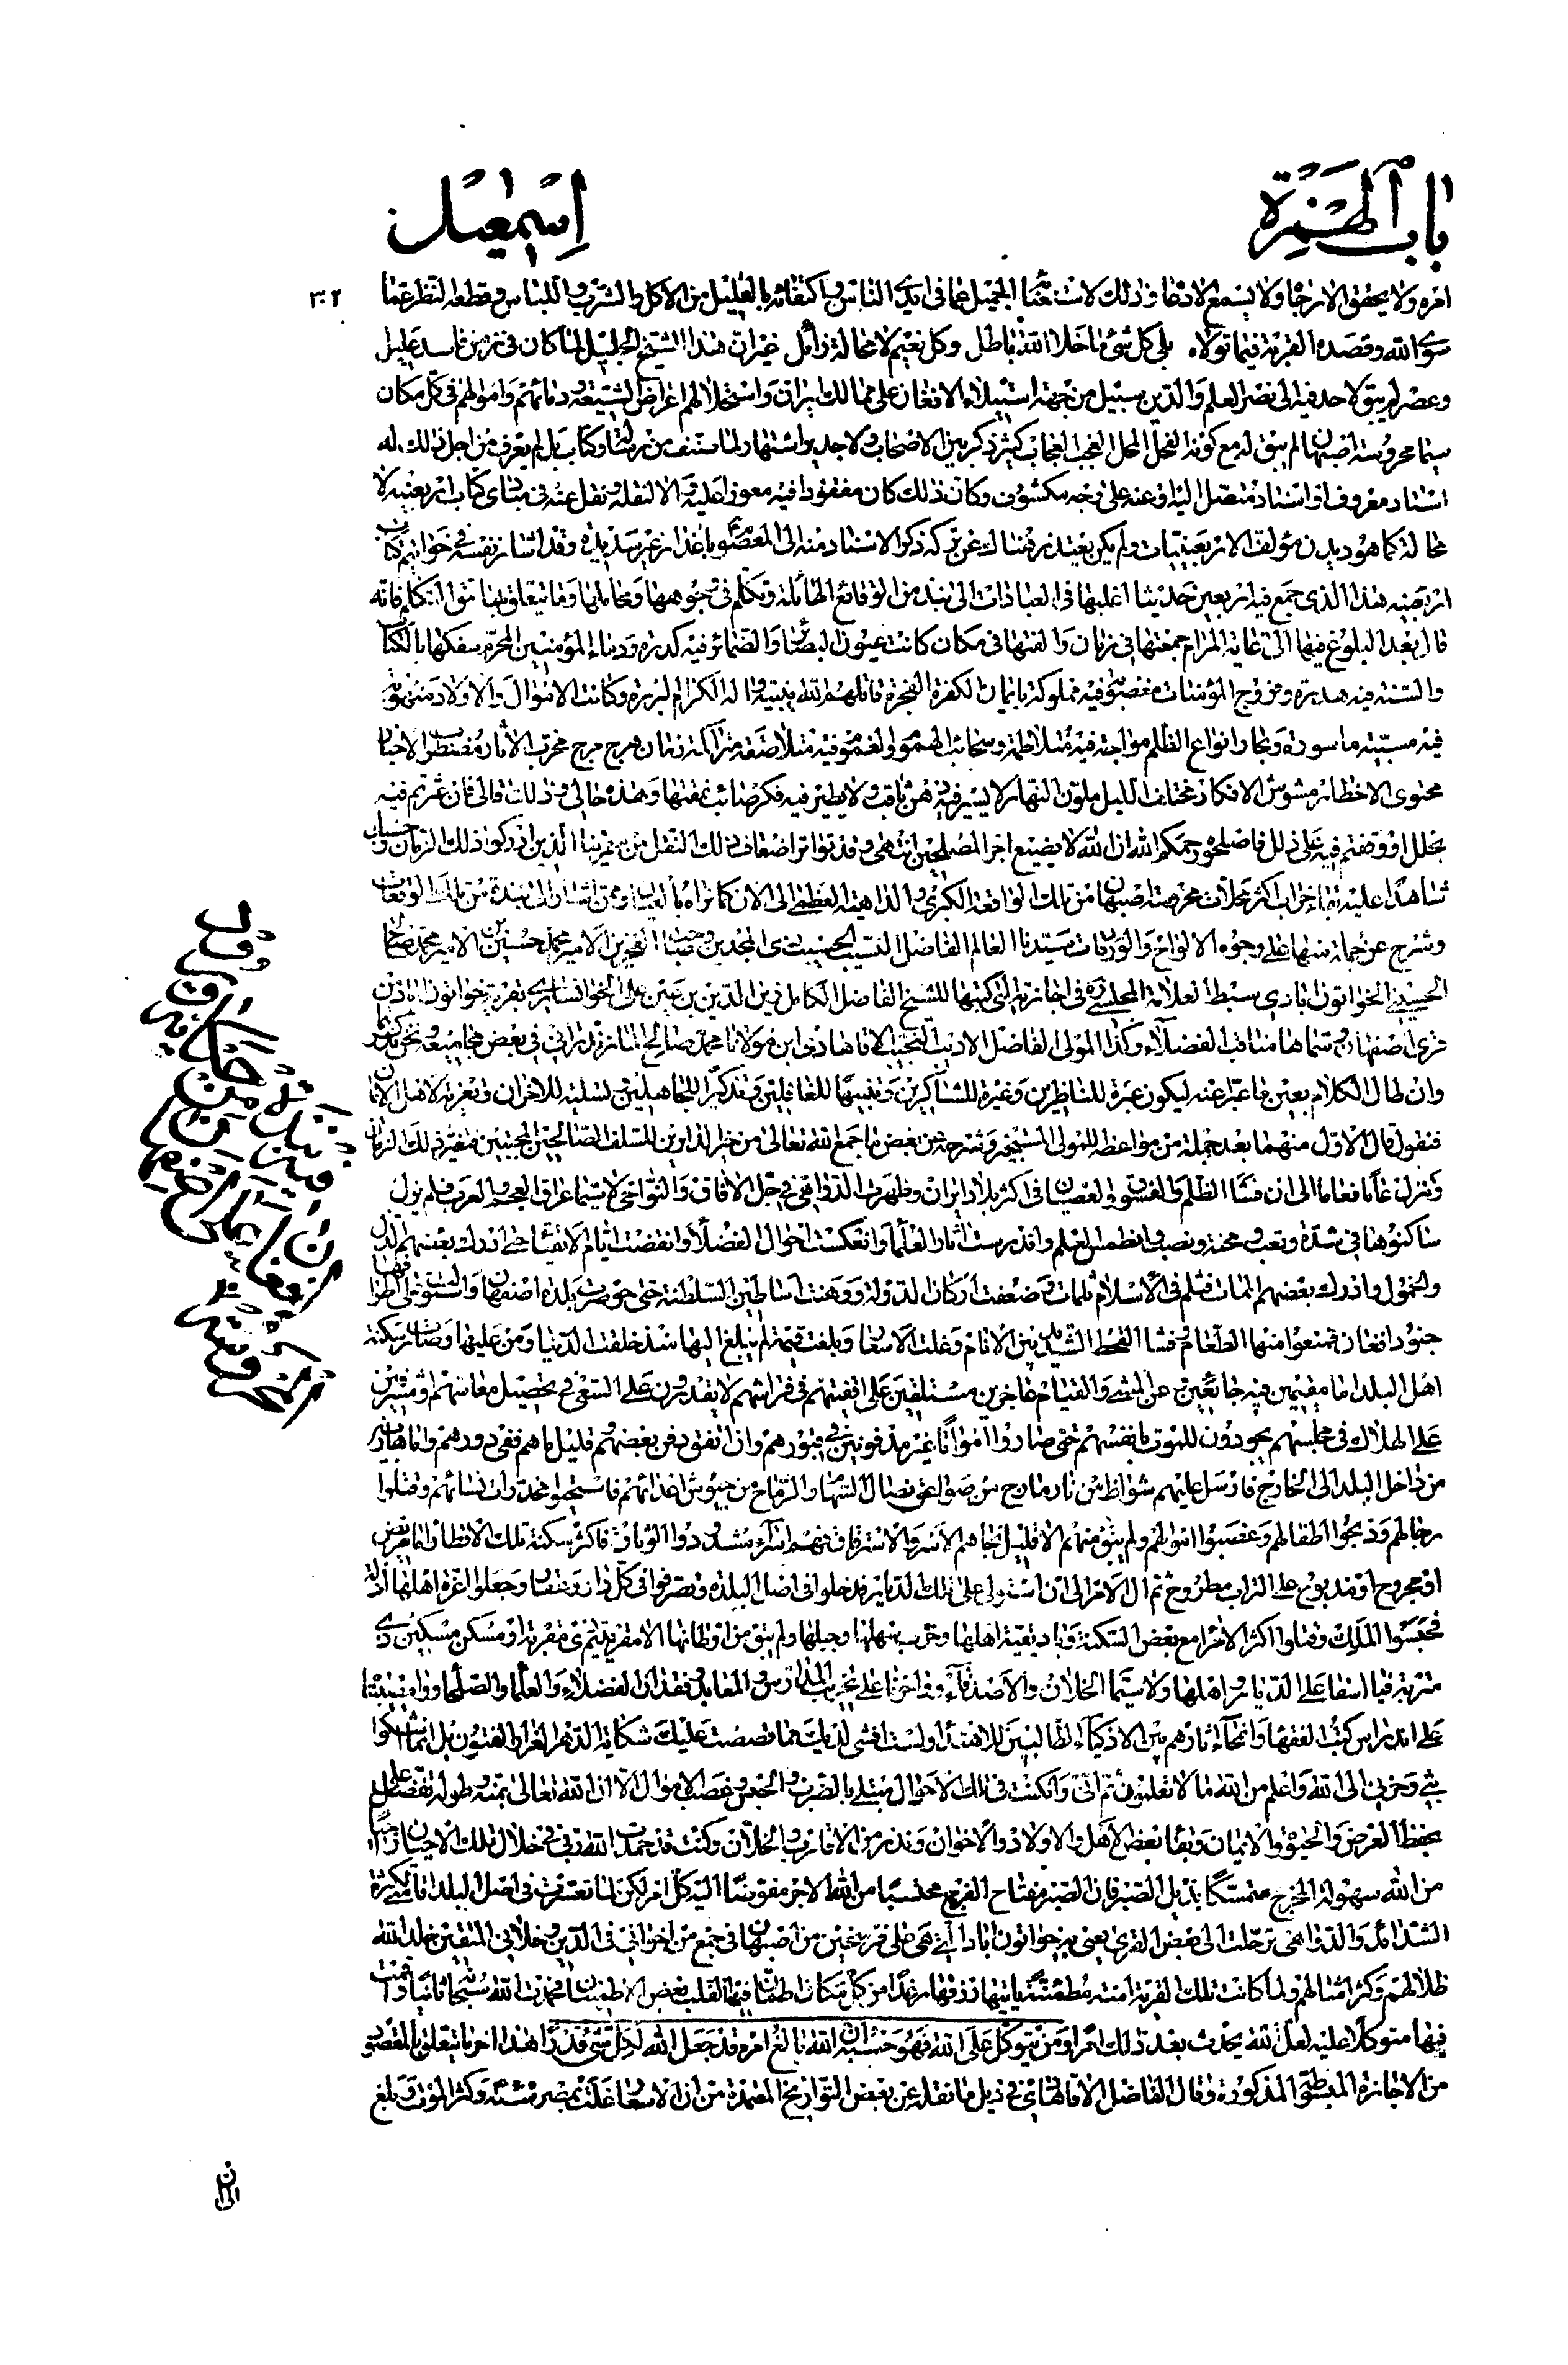 باب الهمزة
اسمعيل
٣٠٢
امره ولا يحقق الا رجا ولا يسمع الا دعا وذلك لاستغنائه الجميل عما فى ايدى الناس واكتفائه بالقليل من الاكل والشرب واللباس وقطعه النظر عما
سوى الله وقصده القربة فيما تولاه بلى كل شئ ما خلا الله باطل وكل نعيم لا محالة زائل غير ان هذا الشيخ الجليل لما كان فى زمن فاسد عليل
وعصر لم يبق لاحد فيه الى نصر العلم والدين سبيل من جهة استيلاء الافغان على ممالك ايران واستحلالهم اعراض الشيعة ودمائهم واموالهم فى كل مكان
سيما محروسة اصبهان لم يبق له مع كونه الفحل المحل العجب العجاب كثير ذكر بين الاصحاب ولا جدير اشتهار لما صنف من رسالة وكتاب بل لم يعرف من اجل ذلك له
استاد معروف او اسناد متصل اليه او عنه على وجه مكشوف وكان ذلك كان مفقودا فيه معوزا عليه والا لنقله ونقل عنه فى مبادى كتاب اربعينه لا
محالة كما هو ديدن مؤلفى الاربعينيات ولم يكن يعتذر هناك عن تركه ذكر الاسناد منه الى المعصوم باعذار غير سديدة وقد اشار نفسه فى خواتيم كتاب
اربعينه هذا الذى جمع فيه اربعين حديثا اغلبها فى العبادات الى نبذ من الوقائع الهائلة وتكلم فى وجوهها ومحاملها وما يتعلق بها متون التكلم فانه
قال بعد البلوغ فيها الى غاية المرام جمعتها فى زمان والفتها فى مكان كانت عيون البصائر والضمائر فيه كدرة ودماء المؤمنين المحرم سفكها بالكتاب
والسنة فيه هدرة وفروج المؤمنات مغصوبة فيه مملوكة بايمان الكفرة الفجرة قاتلهم الله بنبيه واله الكرام البررة وكانت الاموال والاولاد منهوبة
فيه مسبية ماسورة وبحار انواع الظلم مواجة فيه متلاطمة وسحائب الهموم والغموم فيه متلاصقة متراكمة زمان هرج مرج مخرب الاثار مضطرب الاخبار
محتوى الاخطار مشوش الافكار مختلف الليل متلون النهار لا يسير فيه ذهن ثاقب ولا يطير فيه فكر صائب نمقتها وهذه حالى وذلك قالى فان عثرتم فيه
بخلل او وقفتم فيه على زلل فاصلحوه رحمكم الله ان الله لا يضيع اجر المصلحين انتهى وقد تواتر اضعاف ذلك النقل من معمرينا الذين ادركوا ذلك الزمان وحسبك
شاهدا عليه بقاء خراب اكثر محلات محروسة اصبهان من تلك الواقعة الكبرى والداهية العظمى الى الان كما نراه بالعيان وممن اشار الى نبذة من تلك الوقعات
وشرح عن جملة منها على وجوه الالواح والورقات سيدنا العالم الفاضل النسيب الحسيب ذى المجدين وصاحب الفخرين الامير محمد حسين بن الامير محمد صالح
الحسينى الخواتون ابادى سبط العلامة المجلسى ره فى اجازته التى كتبها للشيخ الفاضل الكامل زين الدين بن عين على الخوانسارى بقرية خواتون اباد من
قرى اصفهان وسماها مناقب الفضلاء وكذا المولى الفاضل الاديب النجيب الاقا هادى ابن مولانا محمد صالح المازندرانى فى بعض مجاميعه نحن نذكر كلاميهما
وان طال الكلام بعين ما عبرا عنه ليكون عبرة للناظرين وغيرة للشاكرين وتنبيها للغافلين وتذكيرا للجاهلين وتسلية للاخوان وتعزية لاهل الايمان
فنقول قال الاول منهما بعد جملة من مواعظه للمولى المستجيز وشرحه من بعض ما جمع الله تعالى من خير الدارين للسلف الصالحين المجيبين فتغير ذلك الزمان
وتنزل عاما فعاما الى ان فشا الظلم والفسوق والعصيان فى اكثر بلاد ايران وظهرت الدواهى فى جل الافاق والنواحى لا سيما عراق العجم والعرب فلم يزل
ساكنوها فى شدة وتعب ومحنة ونصب وانطمس العلم واندرست اثار العلماء وانعكست احوال الفضلاء وانقضت ايام الاتقياء حتى ادرك بعضهم الذل
والخمول وادرك بعضهم الممات فثلم فى الاسلام ثلمات وضعفت اركان الدولة ووهنت اساطين السلطنة حتى حوصرت بلدة اصفهان واستولى على اطرافها
جنود افغان فمنعوا منها الطعام وفشا القحط الشديد بين الانام وغلت الاسعار وبلغت قيمة لم يبلغ اليها منذ خلقت الدنيا ومن عليها وصارت سكنة
اهل البلد اما مقيمين فيه جائعين عن المشى والقيام عاجزين مستلقين على اقفيتهم فى فراشهم لا يقدرون على السعى فى تحصيل معاشهم ومشرفين
على الهلاك فى مجلسهم يجودون للموت بانفسهم حتى صاروا امواتا غير مدفونين فى قبورهم وان اتفق دفن بعضهم فقليل ما هم ففى دورهم واما هاربين
من داخل البلد الى الخارج فارسل عليهم شواظ من نار مارج من صواعق نصال السهام والرماح من جيوش اعدائهم فاستحيوا مخدرات نسائهم وقتلوا
رجالهم وذبحوا اطفالهم وغصبوا اموالهم ولم يبق منهم الا قليل نجاهم الاسر والاسترقاق فهم اسراء مشدودوا الوثاق فاكثر سكنة تلك الاقطار اما مريض
او مجروح او مذبوح على التراب مطروح ثم ال الامر الى ان استولى على تلك الديار فدخلوا فى اصل البلدة وتصرفوا فى كل دار وعقار وجعلوا اعزة اهلها اذلة
فحبسوا الملك وقتلوا اكثر الامراء مع بعض السكنة وباد بقية اهلها وخرب سهلها وجبلها ولم يبق من اوطانها الا مقر يتيم ذى مقربة او مسكن مسكين ذى
متربة فيا اسفا على الديار واهلها ولا سيما الخلان والاصدقاء ووا حزنا على تخريب المدارس والمعابد وفقدان الفضلاء والعلماء والصلحاء ووا مصيبتاه
على اندراس كتب الفقهاء وانمحاء اثارهم بين الاذكياء الطالبين للاهتداء ولست افشى لديك مما قصصت عليك شكاية الدهر الغرار الفتون بل انما اشكوا
بثى وحزنى الى الله واعلم من الله ما لا تعلمون ثم انى وان كنت فى تلك الاحوال مبتلى بالضرب والحبس وغصب الاموال الا ان الله تعالى بمنه وطوله تفضل على
بحفظ العرض والحيوة والايمان وبقاء بعض الاهل والاولاد والاخوان ونذر من الاقارب والخلان وكنت قد حمدت الله ربى فى خلال تلك الاحيان راجيا
من الله سهولة المخرج متمسكا بذيل الصبر فان الصبر مفتاح الفرج محتسبا من الله الاجر مفوضا اليه كل امر لكن لما تعسر قرارى فى اصل البلد لمقاساة كثرة
الشدائد والدواهى ترحلت الى بعض القرى يعنى به خواتون اباد التى هى على فرسخين من اصبهان فى جمع من اخوانى فى الدين وخلانى المتقين خلد الله
ظلالهم وكثر امثالهم ولما كانت تلك القرية امنة مطمئنة ياتيها رزقها رغدا من كل مكان اطمأن فيها القلب بعض الاطمينان فحمدت الله سبحانه ثانيا واقمت
فيها متوكلا عليه لعل الله يحدث بعد ذلك امرا ومن يتوكل على الله فهو حسبه ان الله بالغ امره قد جعل الله لكل شئ قدرا هذا اخر ما يتعلق بالمقصود
من الاجازة المبسوطة المذكورة وقال الفاضل الاقا هادى فى ذيل ما نقله عن بعض التواريخ المعتمدة من ان الاسعار غلت بمصر سنة وكثر الموت وبلغ